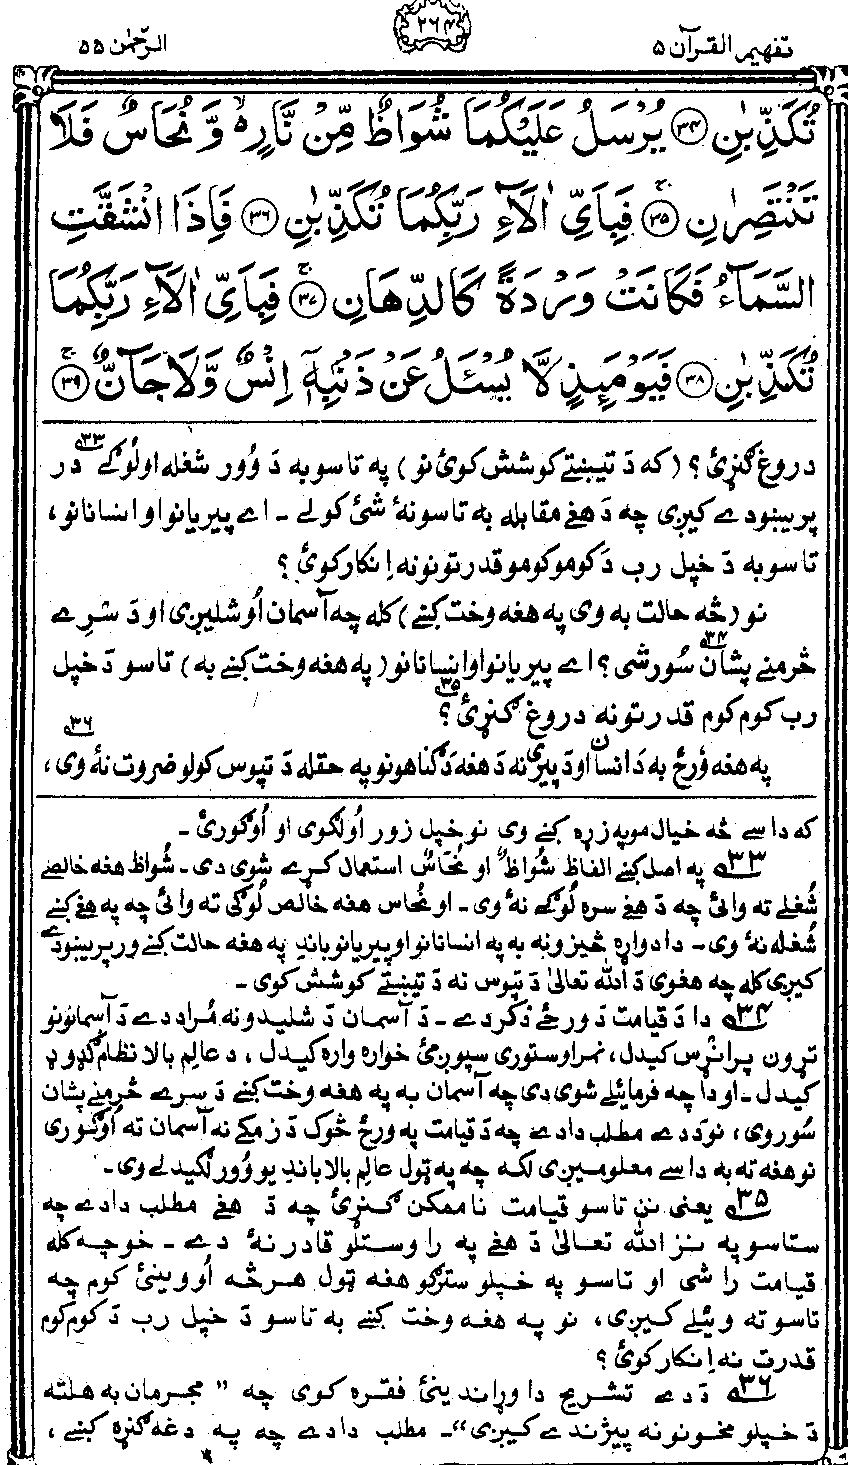 تفهيم القرآن ۵
۲۶۴
الرّحمٰن ۵۵
تُكَذِّبٰنِ ۝۳۴ يُرْسَلُ عَلَيْكُمَا شُوَاظٌ مِّنْ نَّارٍ ۙ وَّ نُحَاسٌ فَلَا
تَنْتَصِرٰنِ ۝۳۵ فَبِاَيِّ اٰلَآءِ رَبِّكُمَا تُكَذِّبٰنِ ۝۳۶ فَاِذَا انْشَقَّتِ
السَّمَآءُ فَكَانَتْ وَرْدَةً كَالدِّهَانِ ۝۳۷ فَبِاَيِّ اٰلَآءِ رَبِّكُمَا
تُكَذِّبٰنِ ۝۳۸ فَيَوْمَئِذٍ لَّا يُسْـَٔلُ عَنْ ذَنْۢبِهٖۤ اِنْسٌ وَّلَا جَآنٌّ ۝۳۹
دروغ ګنړئ؟ (که دَ تيښتے کوشش کوئ نو) په تاسو به دَ وُور شغله او لُوګے ۳۳ در
پريښودے کيږي چه دَ هغے مقابله به تاسو نهٔ شئ کولے ۔ اے پيريانو او انسانانو،
تاسو به دَ خپل رب دَ کومو کومو قدرتونو نه اِنکار کوئ؟
نو (څه حالت به وي په هغه وخت کښے) کله چه آسمان اُوشليږي او دَ سرے
څرمنے پشان سُور شي؟ ۳۴ اے پيريانو او انسانانو (په هغه وخت کښے به) تاسو دَ خپل
رب کوم کوم قدرتونه دروغ ګنړئ؟ ۳۵
په هغه وُرځ به دَ انسان او دَ پيري نه دَ هغه دَ ګناهونو په حقله دَ تپوس کولو ضرورت نهٔ وي، ۳۶
که داسے څه خيال مو په زړه کښے وي نو خپل زور اُولګوي او اُوګورئ ۔
۳۳ په اصل کښے الفاظ شُواظٌ او نُحَاسٌ استمال کړے شوي دي ۔ شُواظ هغه خالصے
شُغلے ته وائي چه دَ هغے سره لُوګے نهٔ وي ۔ او نُحاس هغه خالص لُوګي ته وائي چه په هغے کښے
شُغله نهٔ وي ۔ دا دواړه څيزونه به په انسانانو او پيريانو باندِ په هغه حالت کښے ورپريښودے
کيږي کله چه هغوي دَ الله تعالىٰ دَ تپوس نه دَ تيښتے کوشش کوي ۔
۳۴ دا دَ قيامت دَ ورځے ذکر دے ۔ دَ آسمان دَ شليدو نه مُراد دے دَ آسمانونو
تړون پرانزس کيدل، نمر او ستوري سپوږمئ خواره واره کيدل، دَ عالمِ بالا نظام ګډوډ
کيدل ۔ او دا چه فرمائيلے شوي دي چه آسمان به په هغه وخت کښے دَ سرے څرمنے پشان
سُور وي، نو دَ دے مطلب دا دے چه دَ قيامت په ورځ څوک دَ زمکے نه آسمان ته اُوګوري
نو هغه ته به داسے معلوميږي لکه چه په ټول عالمِ بالا باندِ يو وُور لګيدلے وي ۔
۳۵ يعني نن تاسو قيامت ناممکن ګنړئ چه دَ هغے مطلب دا دے چه
ستاسو په نزد الله تعالىٰ دَ هغے په راوستلو قادر نهٔ دے ۔ خو چه کله
قيامت راشي او تاسو په خپلو سترګو هغه ټول هرڅه اُووينئ کوم چه
تاسو ته وئيلے کيږي، نو په هغه وخت کښے به تاسو دَ خپل رب دَ کوم کوم
قدرت نه اِنکار کوئ؟
۳۶ دَ دے تشريح دا وړاندينئ فقره کوي چه ”مجرمان به هلته
دَ خپلو مخونو نه پيژندے کيږي“۔ مطلب دا دے چه په دغه ګنړه کښے،